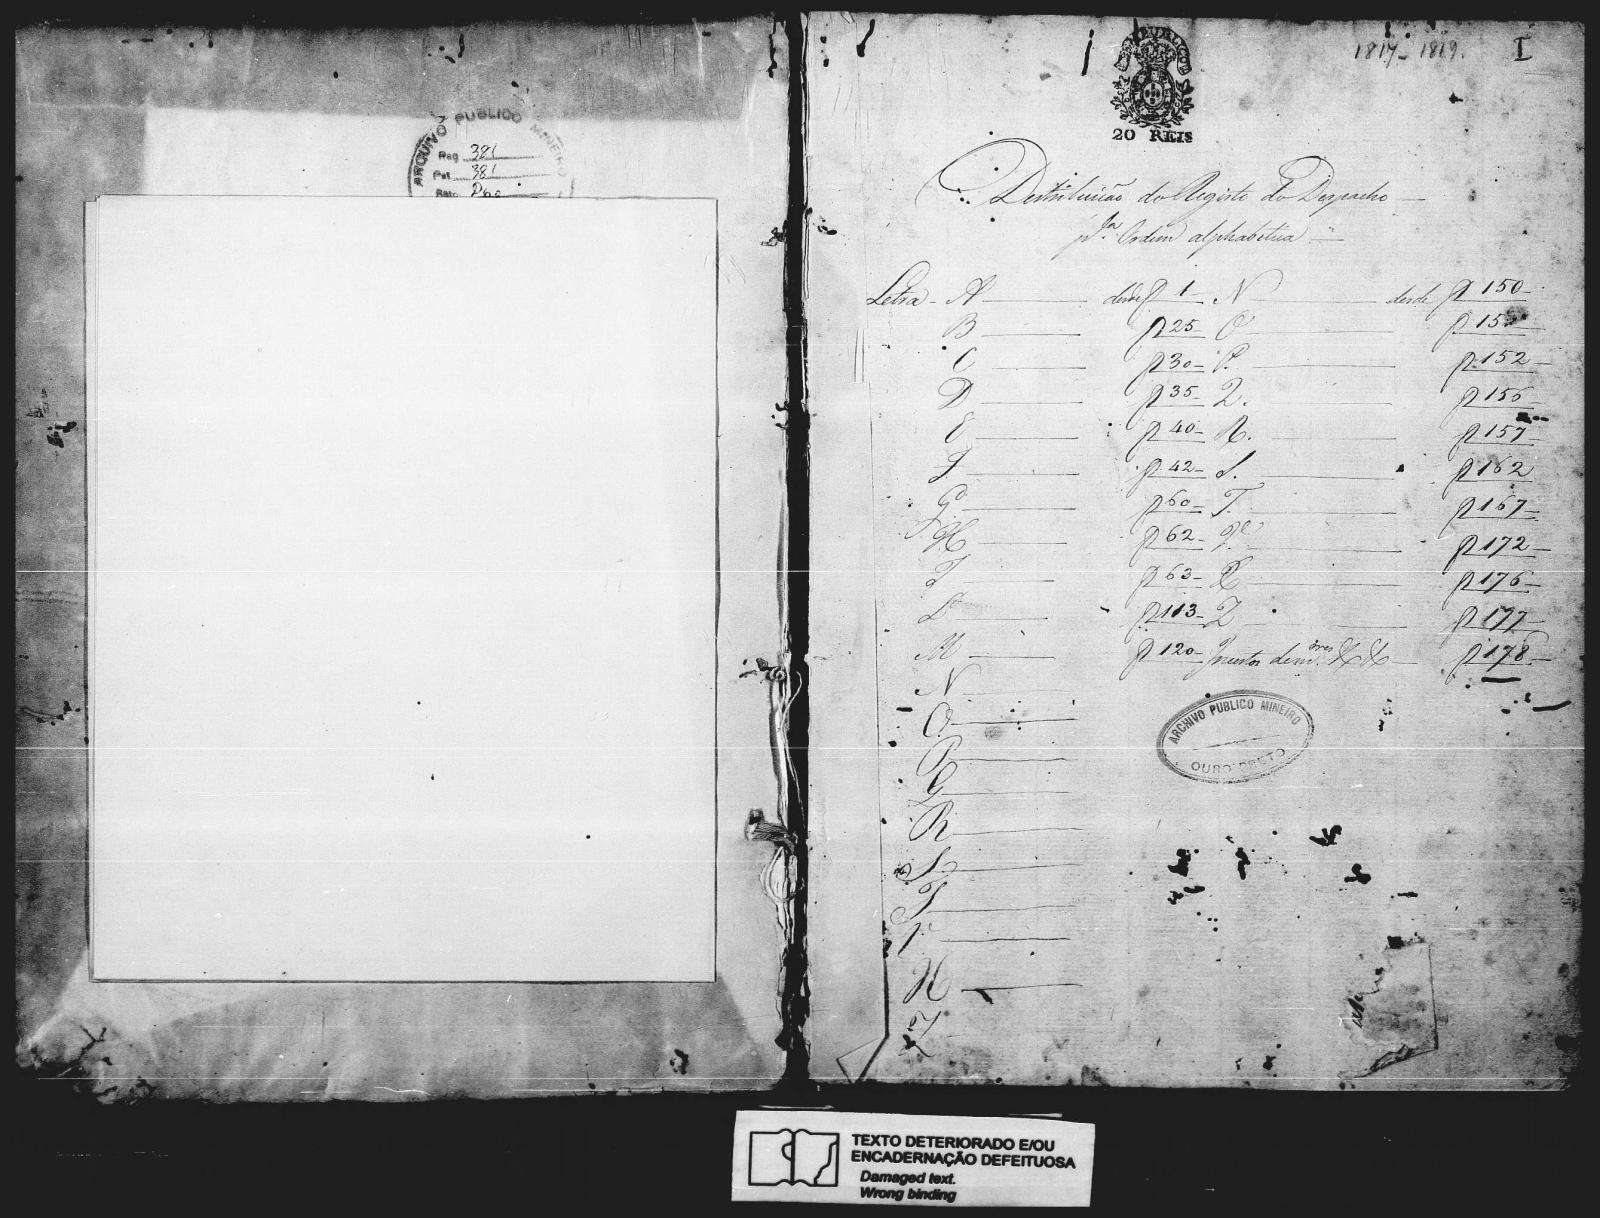 ARQUIVO PUBLICO MINEIRO
Reg 381
381
1817-1819. I
PUBLICO
20 REIS
Destribuição do Registo do Despacho
pla Ordem alphabetica
Letra - A desde f 1 N desde f 150
B f 25 O f 15
C f 30 P. f 152
D f 35 Q. f 156
E f 40 R. f 157
F f 42 S. f 162
G f 60 T. f 167
H f 62 V f 172
I f 63 X f 176
L f 113 Z f 177
M f 120 f 178
N
O
P
Q
R
S
T
V
X
Z
ARCHIVO PUBLICO MINEIRO
OURO PRETO
TEXTO DETERIORADO E/OU
ENCADERNAÇÃO DEFEITUOSA
Damaged text.
Wrong binding